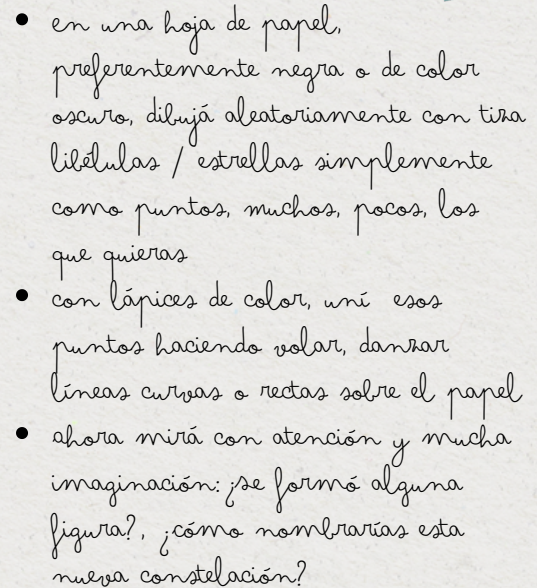 • en una hoja de papel,
preferentemente negra o de color
oscuro, dibujá aleatoriamente con tiza
libélulas / estrellas simplemente
como puntos, muchos, pocos, los
que quieras
• con lápices de color, uní esos
puntos haciendo volar, danzar
líneas curvas o rectas sobre el papel
• ahora mirá con atención y mucha
imaginación: ¿se formó alguna
figura?, ¿cómo nombrarías esta
nueva constelación?